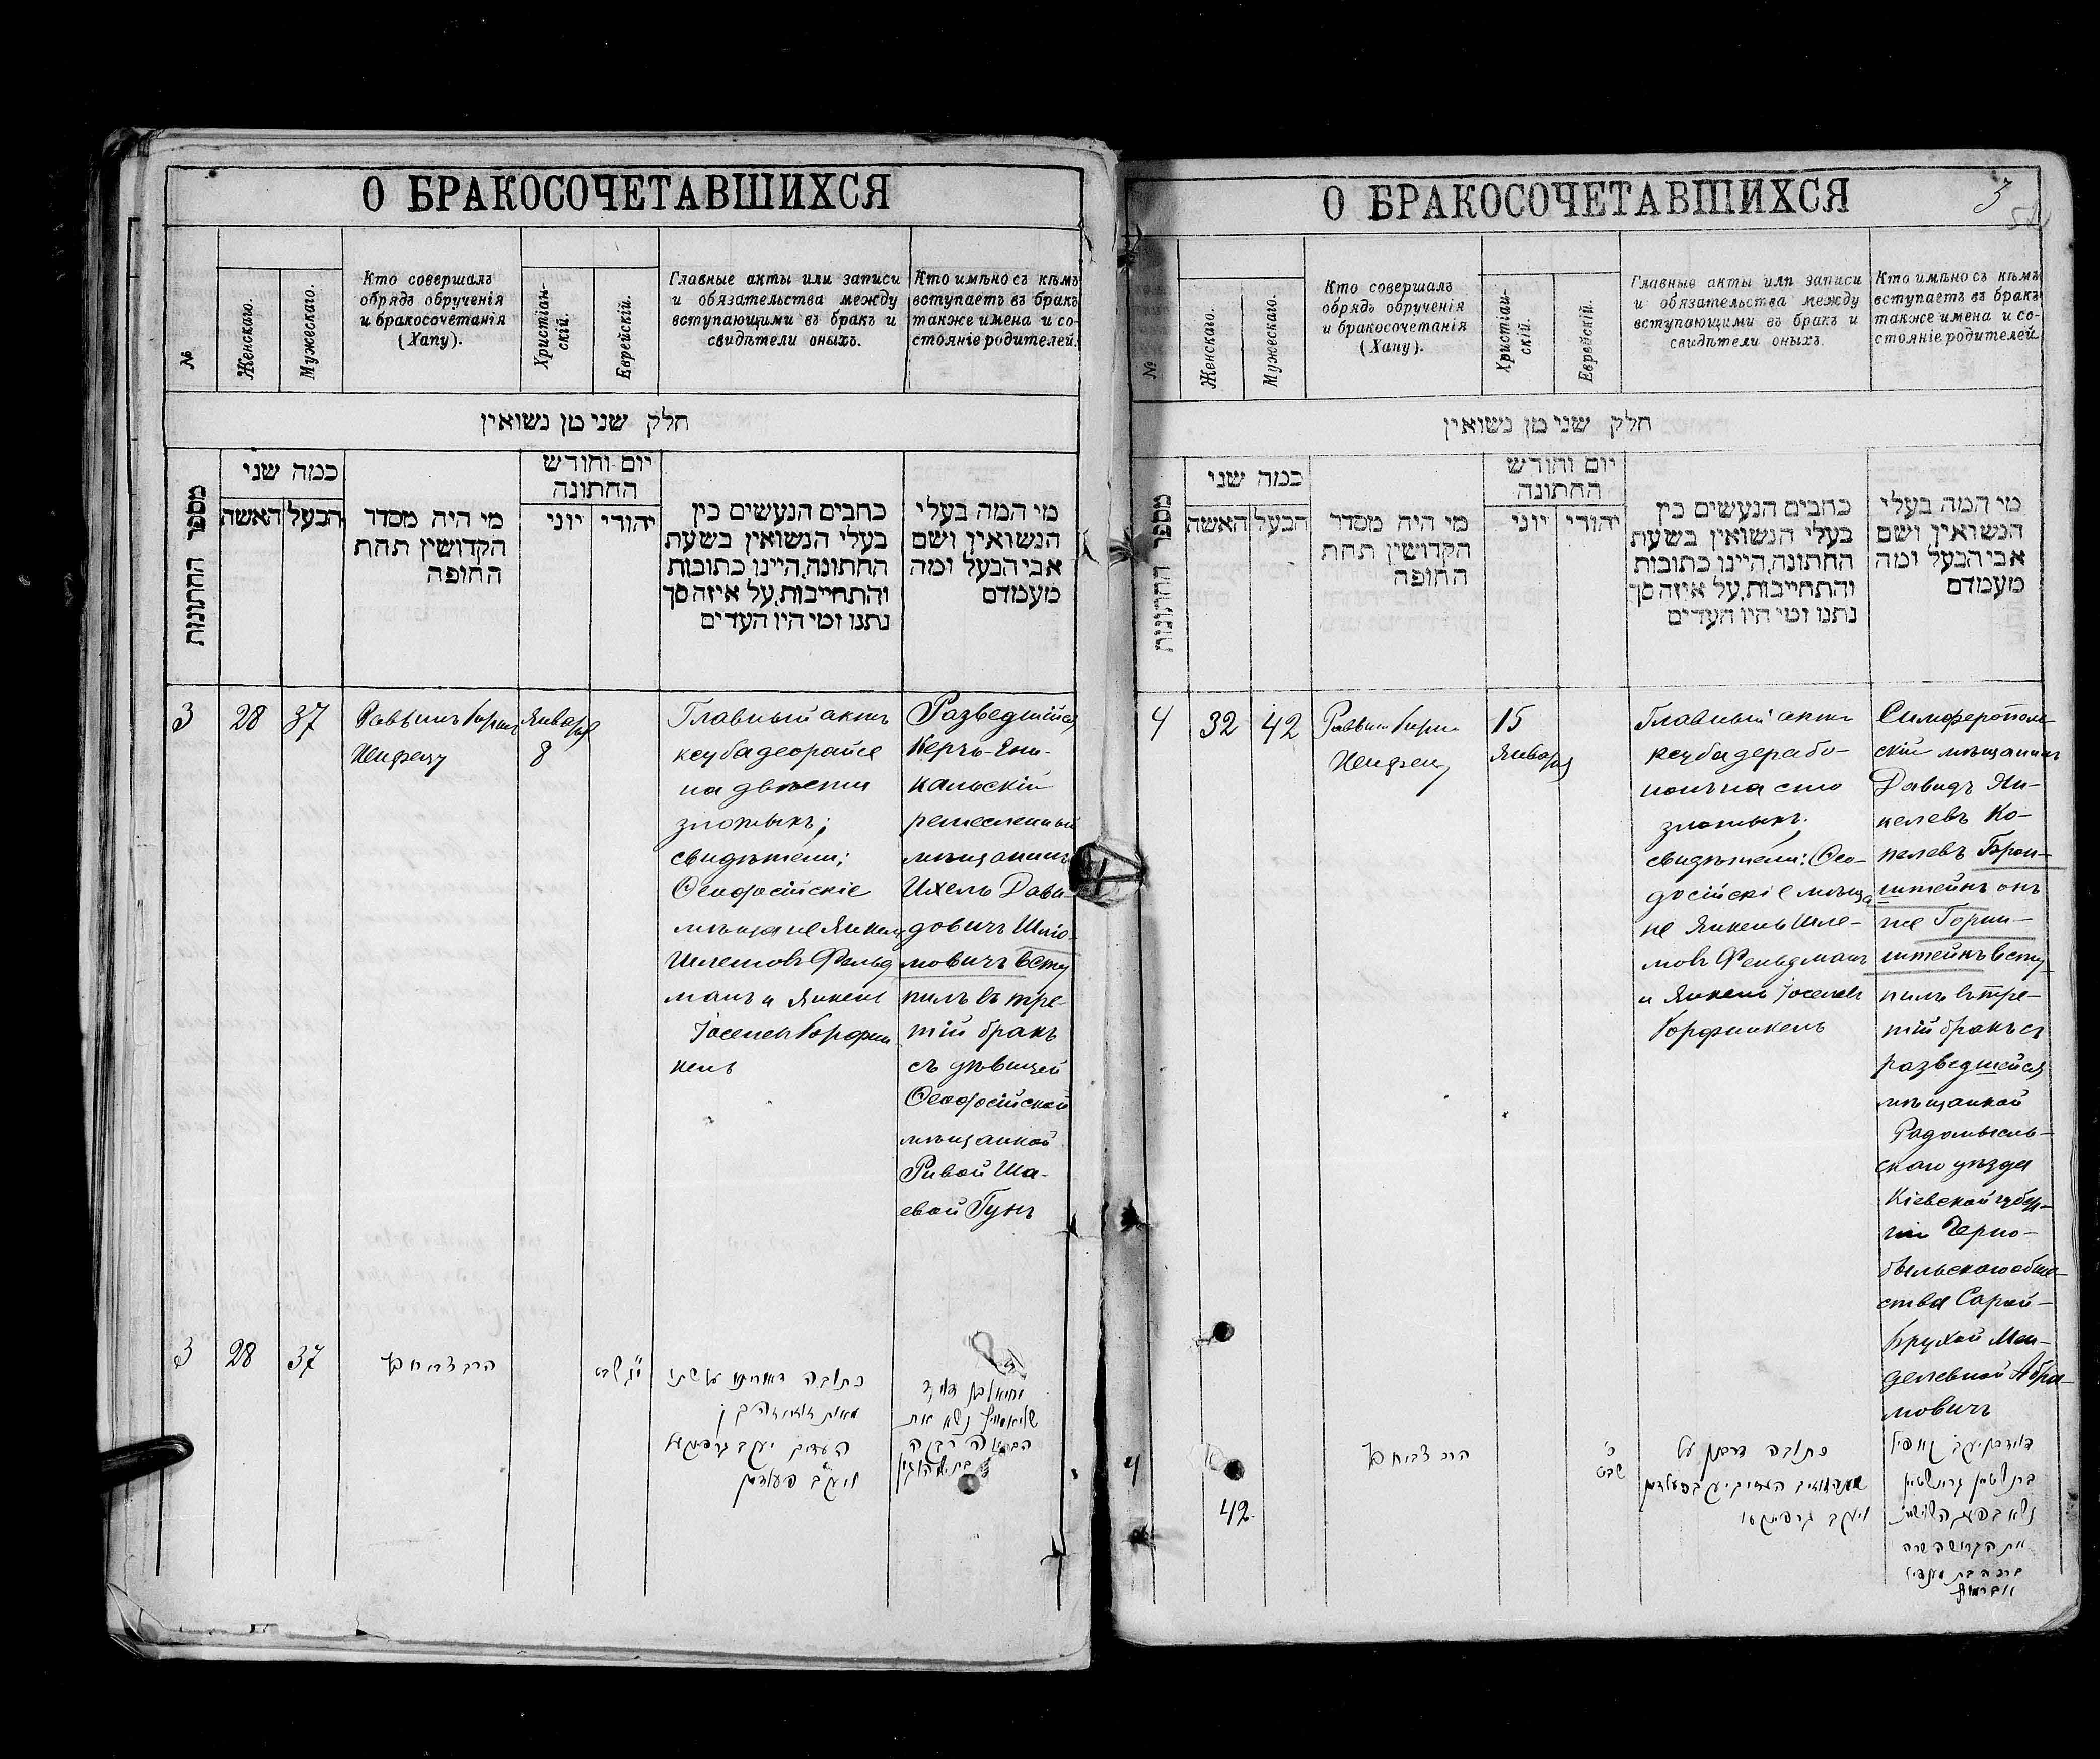 О БРАКОСОЧЕТАВШИХСЯ
№
Женскаго.
Мужескаго.
Кто совершалъ
обрядъ обрученія
и бракосочетанія
(Хапу).
Христіан-
скій.
Еврейскій.
Главные акты или записи
и обязательства между
вступающими въ бракъ и
свидѣтели оныхъ.
Кто имѣно съ кѣмъ
вступаетъ въ бракъ
также имена и со-
стояніе родителей.
חלק שני מן נשואין
מספר החתונות
כמה שני
האשה
הבעל
מי היה מסדר
הקדושין תחת
החופה
יום וחודש
החתונה
יוני
יהודי
כתבים הנעשים בין
בעלי הנשואין בשעת
החתונה, היינו כתובות
והתחייבות, על איזה סך
נתנו ומי היו העדים
מי המה בעלי
הנשואין ושם
אבי הבעל ומה
מעמדם
3
28
37
Раввинъ
Января
8
Главный актъ
кеубадеорайсе
на двѣсти
злотыхъ;
свидѣтели:
Ѳеодосійскіе
мѣщане Янкель
Шлемовъ Фельд
манъ и Янкель
Іоселевъ Горфин
кель
Разведшійся
Керчь-Ени-
кальскій
ремесленный
мѣщанинъ
Ихель Дави-
довичъ Шлио-
мовичъ всту
пилъ въ тре-
тій бракъ
съ дѣвицей
Ѳеодосійской
мѣщанкой
Ривой Ша-
евой Гунъ
3
28
37
הרב
שבט
כתובה דאורייתא
מאות
העדים יעקב גרפינקעל
ויעקב פעלדמן
דוד
נשא את
О БРАКОСОЧЕТАВШИХСЯ
3
№
Женскаго.
Мужескаго.
Кто совершалъ
обрядъ обрученія
и бракосочетанія
(Хапу).
Христіан-
скій.
Еврейскій.
Главные акты или записи
и обязательства между
вступающими въ бракъ и
свидѣтели оныхъ.
Кто имѣно съ кѣмъ
вступаетъ въ бракъ
также имена и со-
стояніе родителей.
חלק שני מן נשואין
מספר החתונות
כמה שני
האשה
הבעל
מי היה מסדר
הקדושין תחת
החופה
יום וחודש
החתונה
יוני
יהודי
כתבים הנעשים בין
בעלי הנשואין בשעת
החתונה, היינו כתובות
והתחייבות, על איזה סך
נתנו ומי היו העדים
מי המה בעלי
הנשואין ושם
אבי הבעל ומה
מעמדם
4
32
42
Раввинъ
15
Января
Главный актъ
кеубадерабо-
нонъ на сто
злотыхъ;
свидѣтели: Ѳео-
досійскіе мѣща
не Янкель Шле-
мовъ Фельдманъ
и Янкель Іоселевъ
Горфинкель
Симферополь-
скій мѣщанинъ
Давидъ Ян-
келевъ Ко-
пелевъ Брон-
штейнъ онъ
же Горин-
штейнъ всту
пилъ въ тре-
тій бракъ съ
разведшейся
мѣщанкой
Радомысль-
скаго уѣзда
Кіевской губер-
ніи Черно-
быльскаго обще-
ства Сарой-
Брухой Мен-
делевной Абра-
мовичъ
4
42.
הרב
שבט
כתובה דרבנן על
ויעקב
את הגרושה שרה